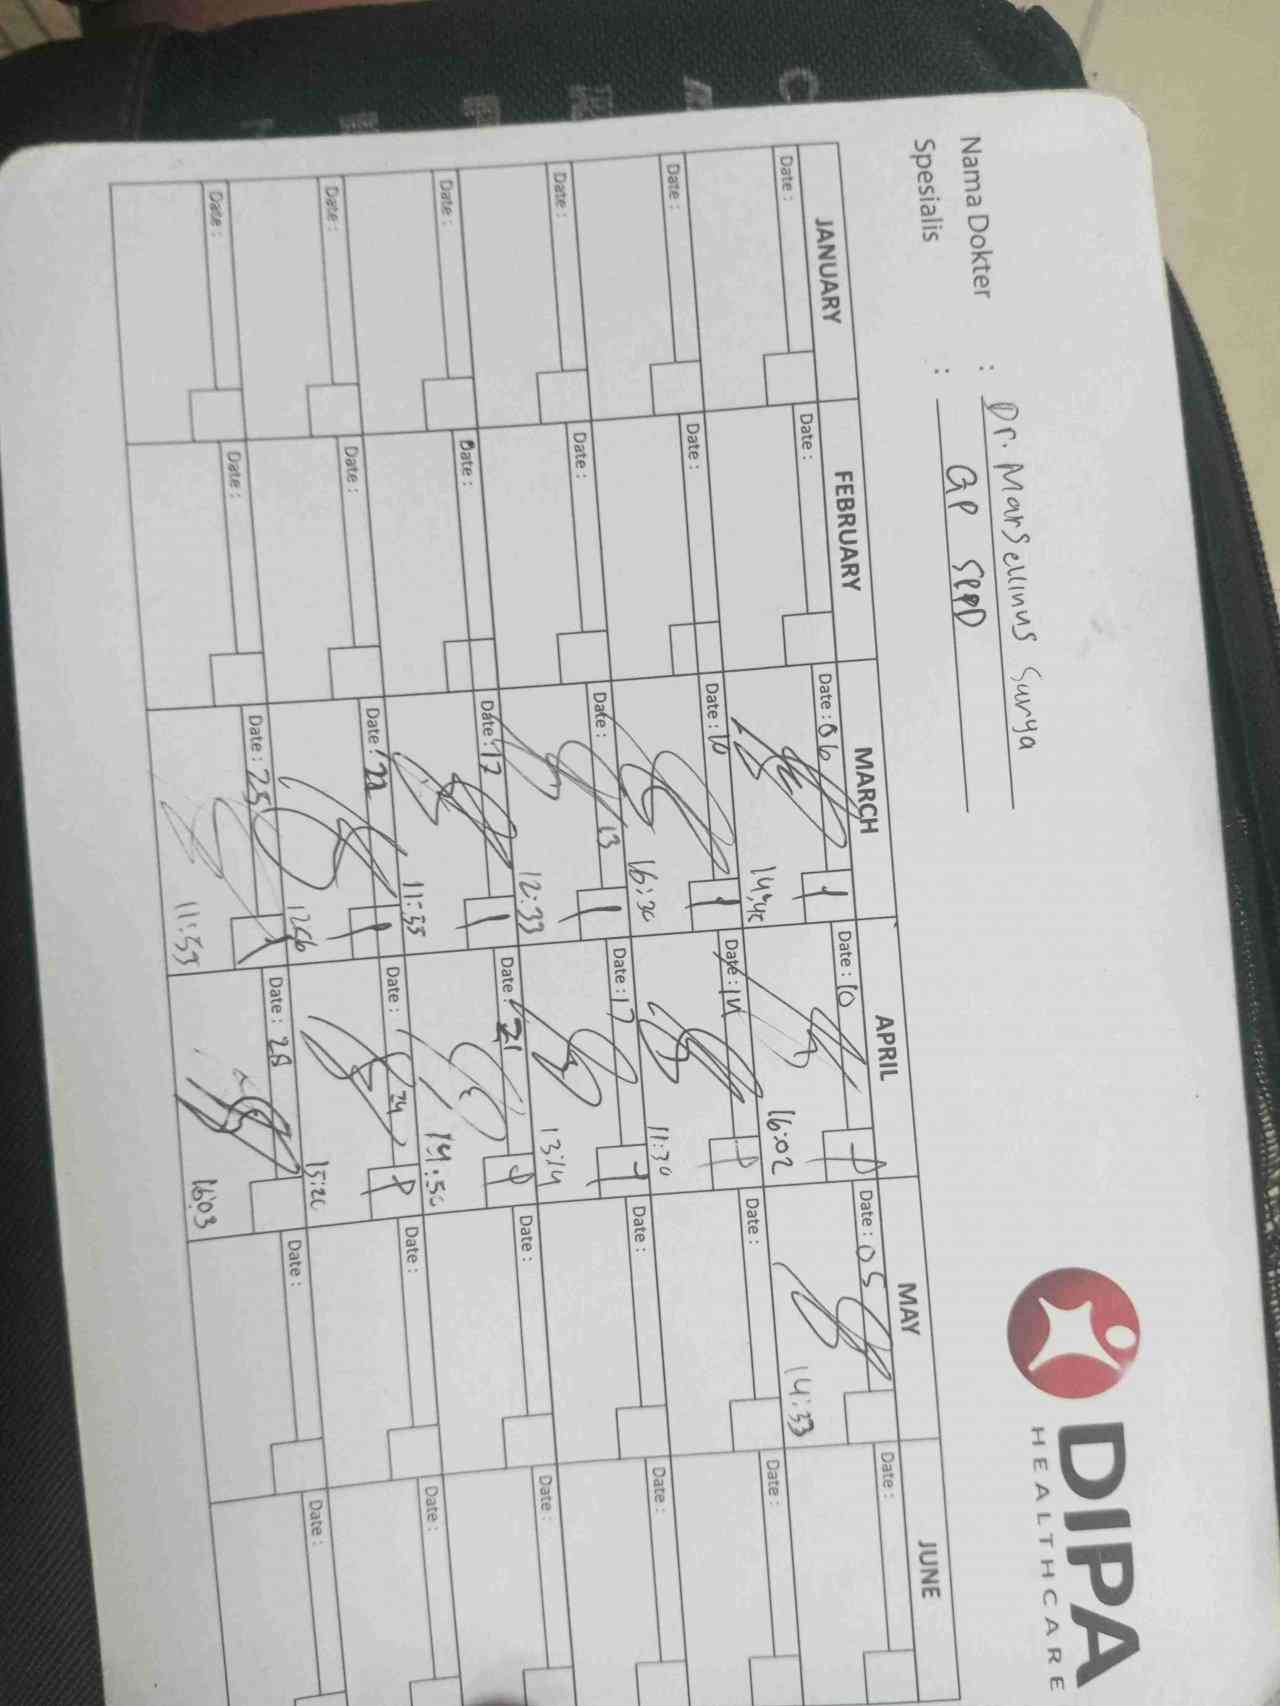 DIPA
HEALTHCARE
Nama Dokter : Dr. Marsellinus Surya
Spesialis : GP SPPD
JANUARY FEBRUARY MARCH APRIL MAY JUNE
Date : Date : Date : 06 Date : 10 Date : 05 Date :
14:40 16:02 14:33
Date : Date : Date : 10 Date : 14 Date : Date :
16:30 11:30
Date : Date : Date : 13 Date : 17 Date : Date :
12:33 13:14
Date : Date : Date : 17 Date : 21 Date : Date :
11:55 14:50
Date : Date : Date : 22 Date : 24 Date : Date :
1256 15:20
Date : Date : Date : 25 Date : 28 Date : Date :
11:55 16:03